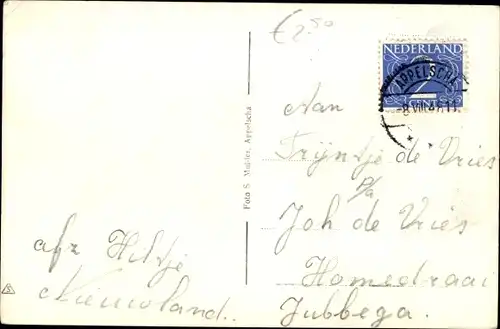 €2.50
NEDERLAND
2
APPELSCHA
8.VIII.47.11
Aan
Trijntje de Vries
p/a
Joh de Vries
Hamedraai
Jubbega.
Foto S. Mulder, Appelscha
afz Hiltje
Nieuwland.